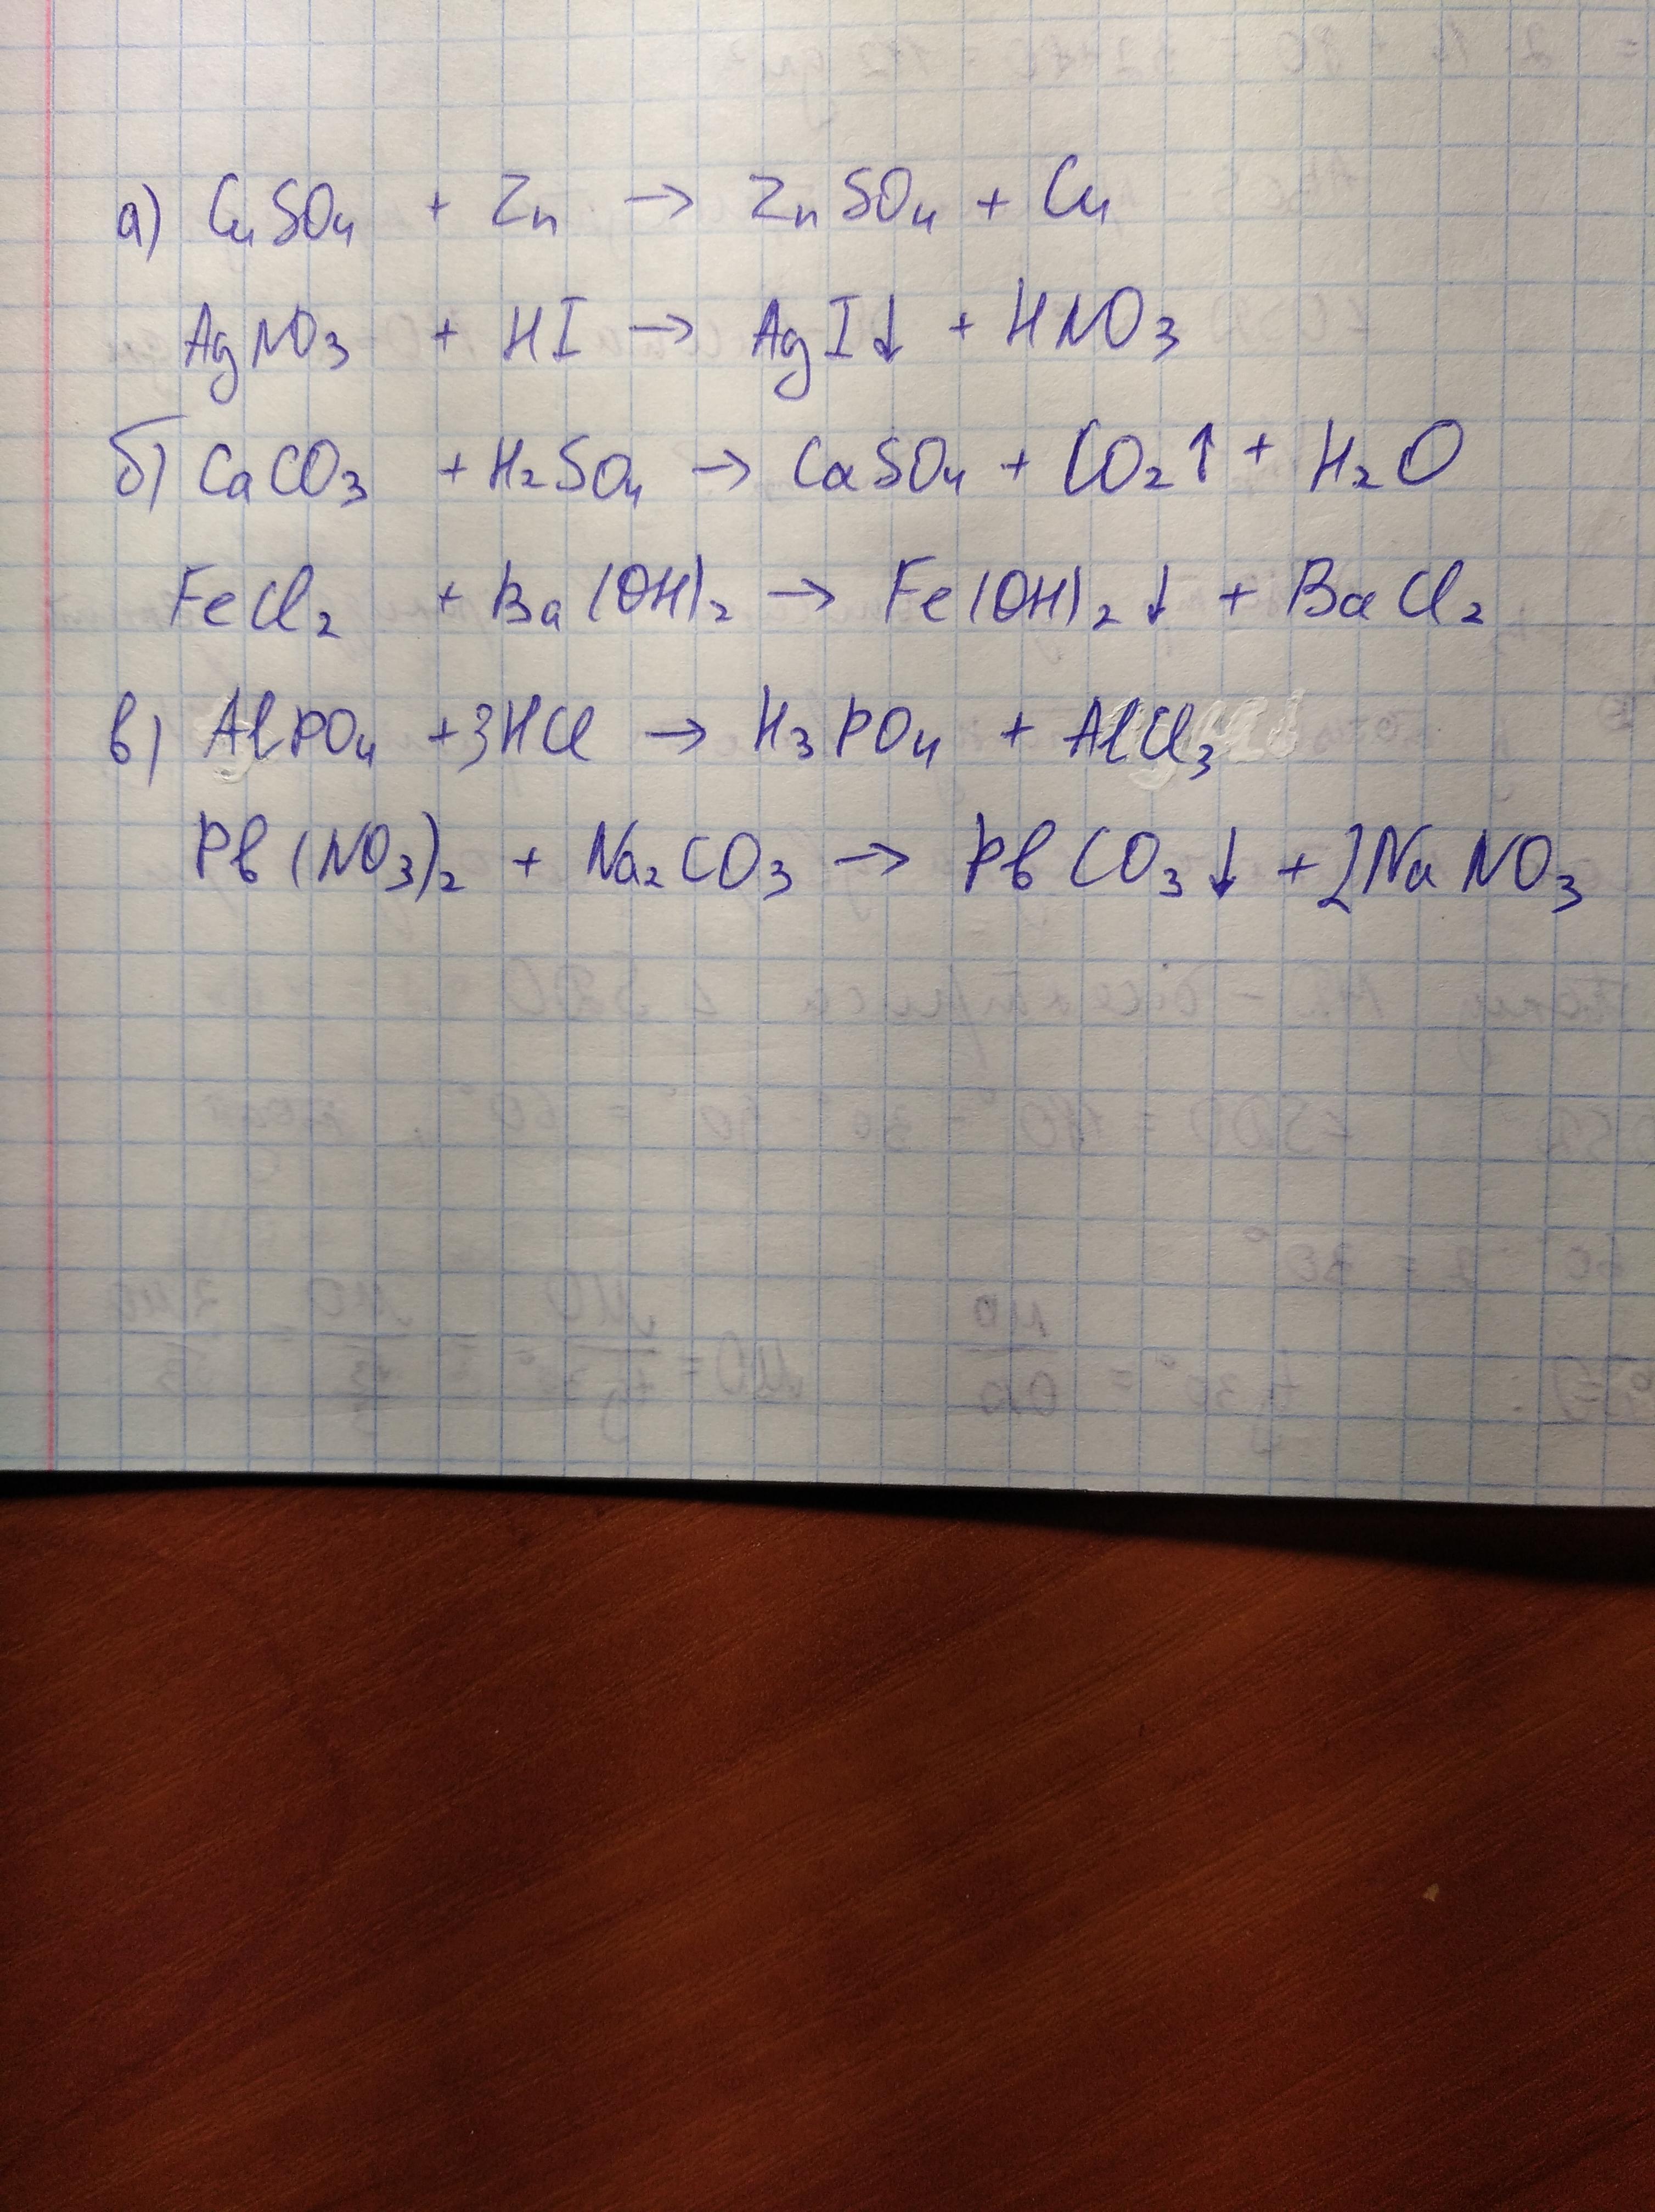 а) CuSO₄ + Zn → ZnSO₄ + Cu
AgNO₃ + HI → AgI↓ + HNO₃
б) CaCO₃ + H₂SO₄ → CaSO₄ + CO₂↑ + H₂O
FeCl₂ + Ba(OH)₂ → Fe(OH)₂↓ + BaCl₂
в) AlPO₄ + 3HCl → H₃PO₄ + AlCl₃
Pb(NO₃)₂ + Na₂CO₃ → PbCO₃↓ + 2NaNO₃